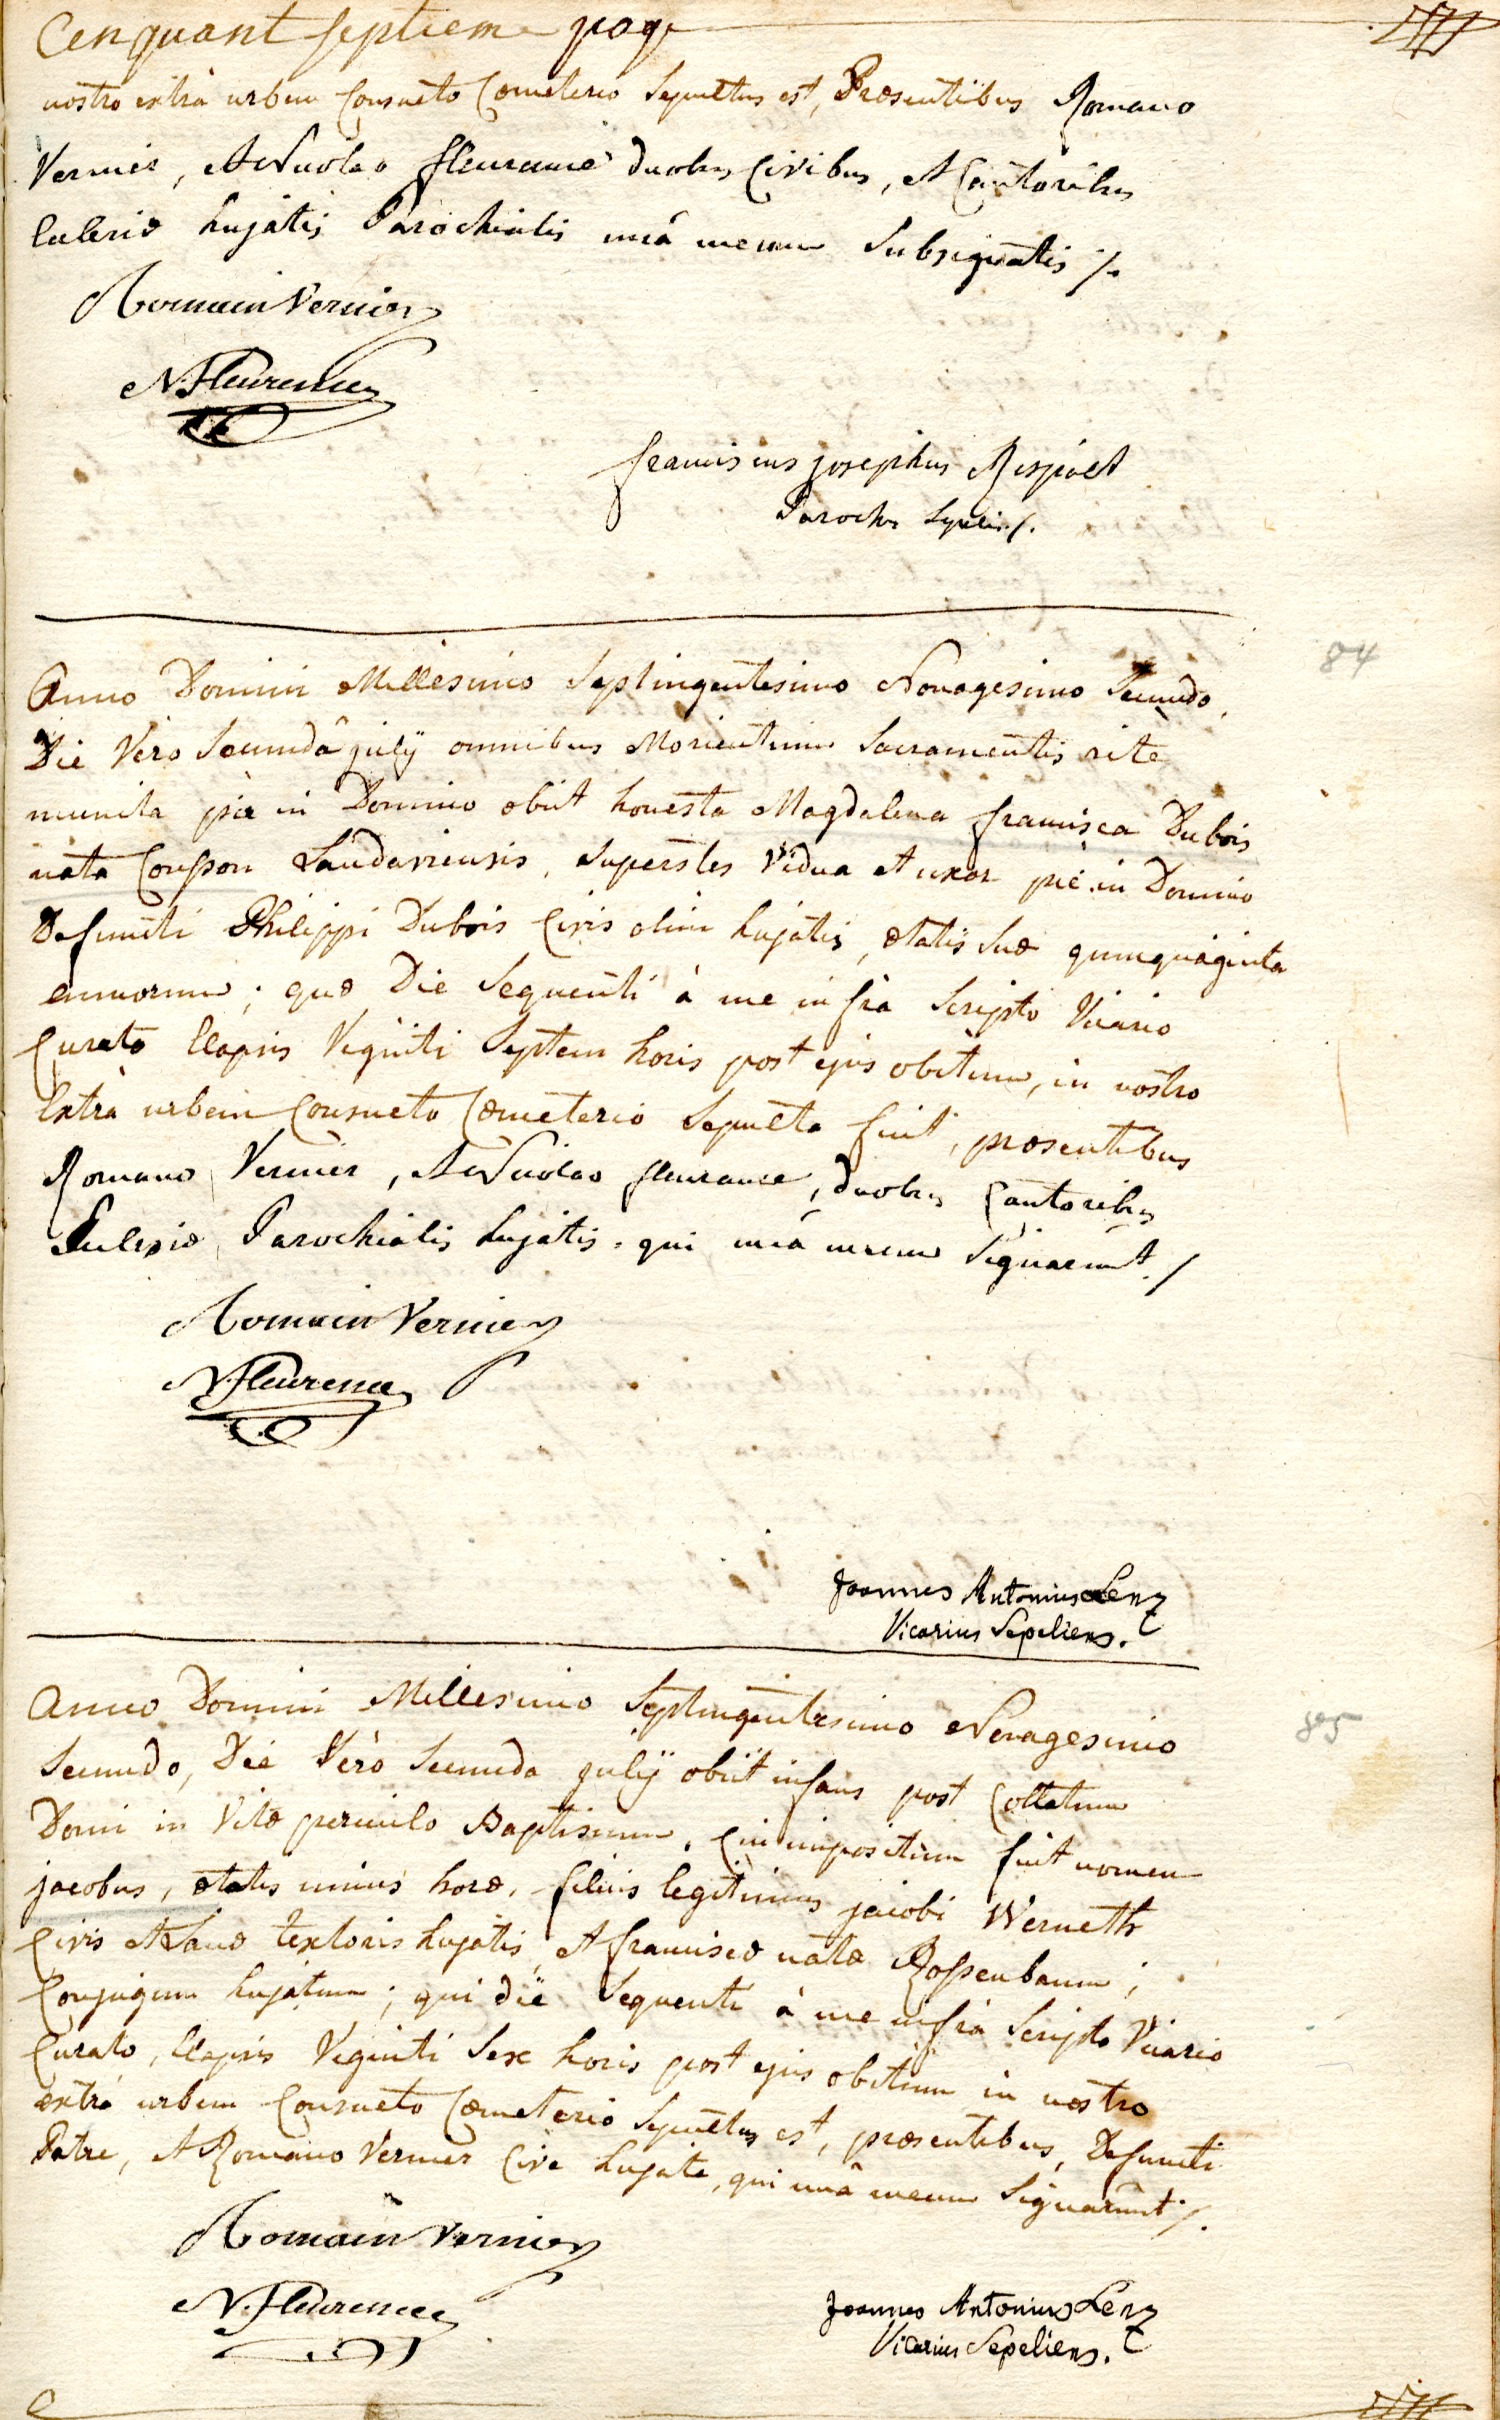 Cenquant septieme page
nostro extrà urbem Consueto Cœmeterio Sepultus est, Præsentibus Romano
Vernier, et Nicolao fleurance duobus Civibus, et Cantoribus
Ecclesiæ hujatis Parochialis unà mecum Subsignatis ·/.
Romain Vernier
N. Fleurence
franciscus josephus Respiact
Parochus Sepelis./.
84
Anno Domini Millesimo Septingentesimo Nonagesimo Secundo,
Die Vero Secundâ julÿ omnibus Morientium Sacramentis rite
munita piè in Domino obiit honesta Magdalena francisca Dubois
nata Consson Landaviensis, Superstes Vidua et uxor piè in Domino
Defuncti Philippi Dubois Civis olim hujatis, ætatis suæ quinquàginta
annorum; quæ Die Sequenti à me infrà Scripto Vicario
Curato Elapsis Viginti Septem horis post ejus obitum, in nostro
Extrà urbem Consueto Cœmeterio Sepulta fuit, præsentibus
Romano Vernier, et Nicolao fleurance, duobus Cantoribus
Eclesiæ Parochialis hujatis, qui unà mecum Signarunt./
Romain Vernier
N. Fleurence
Joannes Antonius Lenz
Vicarius Sepeliens.
85
Anno Domini Millesimo Septingentesimo Nonagesimo
Secundo, Die Verò Secunda julÿ obiit infans post Collatum
Domi in Vitæ periculo Baptismum, Cui impositum fuit nomen
jacobus, ætatis unius horæ, filius legitimus jacobi Werneth
Civis et Lanæ textoris hujatis, et franciscæ natæ Rossenbaum;
Conjugum hujatum; qui die Sequenti à me infrà Scripto Vicario
Curato, Elapsis Viginti Sex horis post ejus obitum in nostro
extrà urbem Consueto Cœmeterio Sepultus est, præsentibus, Defuncti
Patre, et Romano Vernier Cive hujate, qui unâ mecum Signarunt·/.
Romain Vernier
N. Fleurence
Joannes Antonius Lenz
Vicarius Sepeliens.